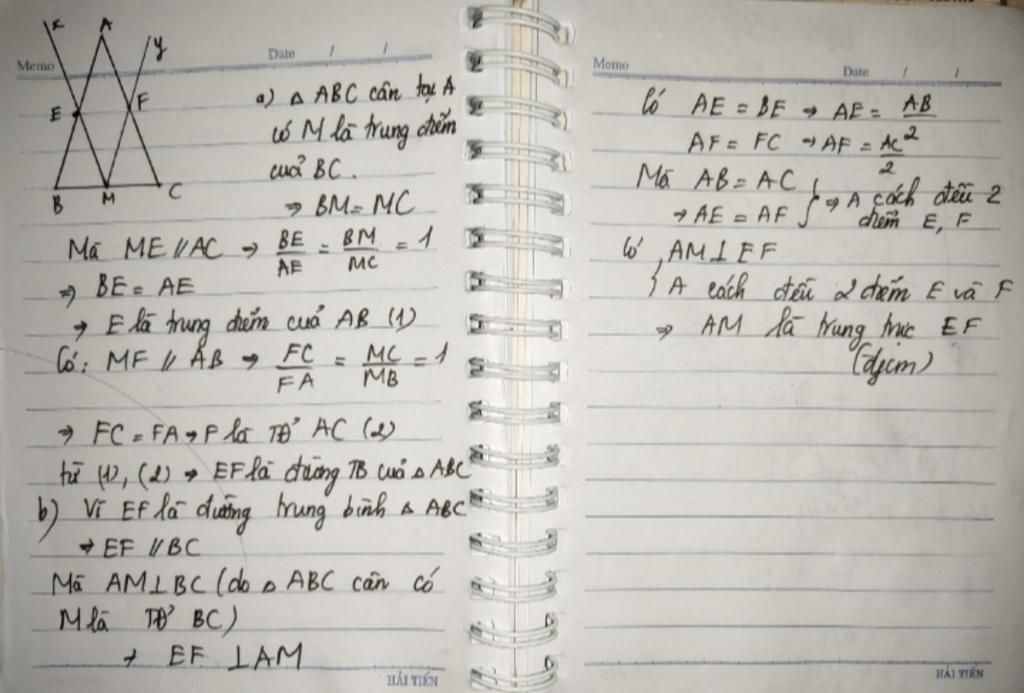 x
A
y
E
F
B
M
C
Memo
Date / /
a) △ ABC cân tại A
có M là trung điểm
của BC.
⇒ BM = MC
Mà ME // AC ⇒ BE/AE = BM/MC = 1
⇒ BE = AE
⇒ E là trung điểm của AB (1)
Có: MF // AB ⇒ FC/FA = MC/MB = 1
⇒ FC = FA ⇒ F là TĐ AC (2)
từ (1), (2) ⇒ EF là đường TB của △ ABC
b) Vì EF là đường trung bình △ ABC
⇒ EF // BC
Mà AM ⊥ BC (do △ ABC cân có
M là TĐ BC)
⇒ EF ⊥ AM
HẢI TIẾN
Memo
Date / /
Có AE = BE ⇒ AE = AB/2
AF = FC ⇒ AF = AC/2
Mà AB = AC
⇒ AE = AF } ⇒ A cách đều 2
điểm E, F
Có { AM ⊥ EF
A cách đều 2 điểm E và F
⇒ AM là trung trực EF
(đpcm)
HẢI TIẾN